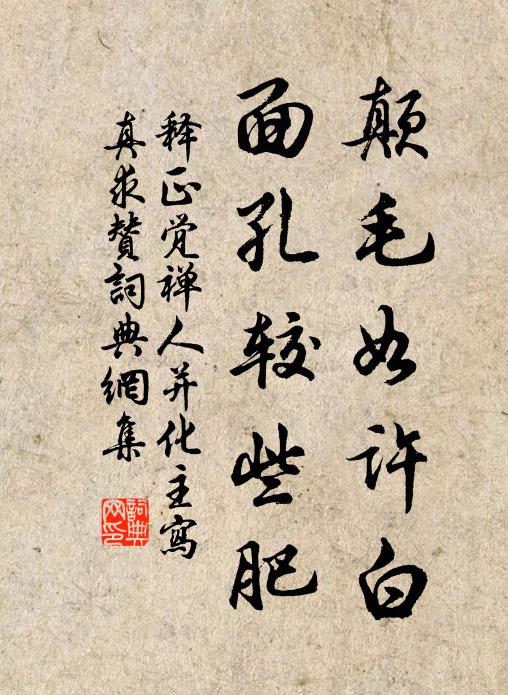 颠毛如许白
面孔较些肥
释正觉禅人并化主寫
真求赞詞典網集
詞典网印